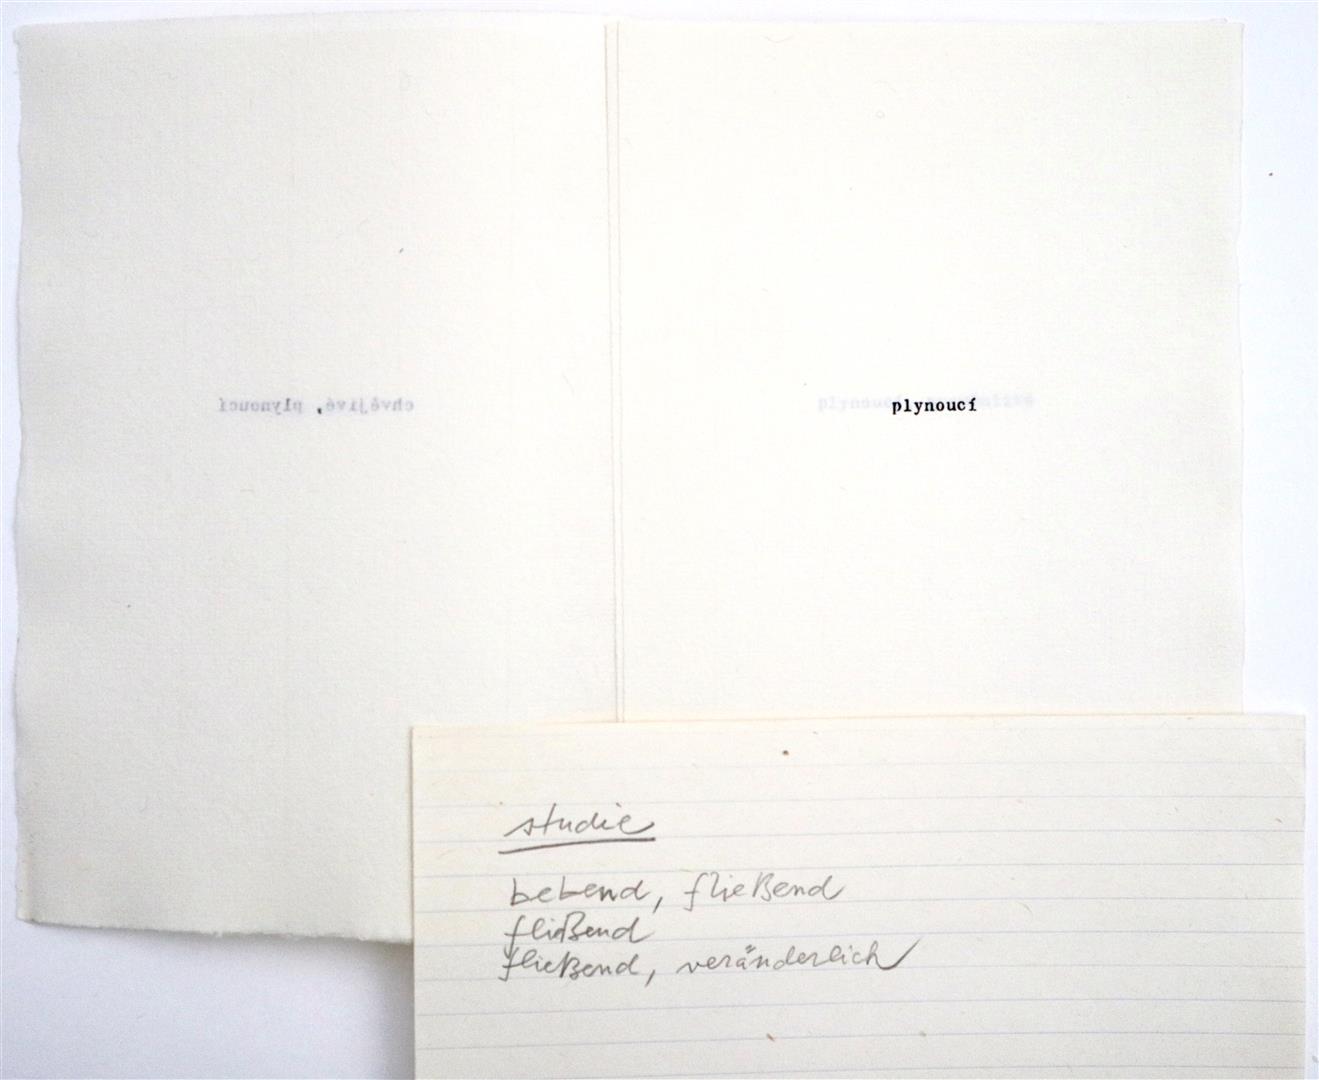 chvějivé, plynoucí
plynoucí
plynoucí
studie
bebend, fließend
fließend
fließend, veränderlich